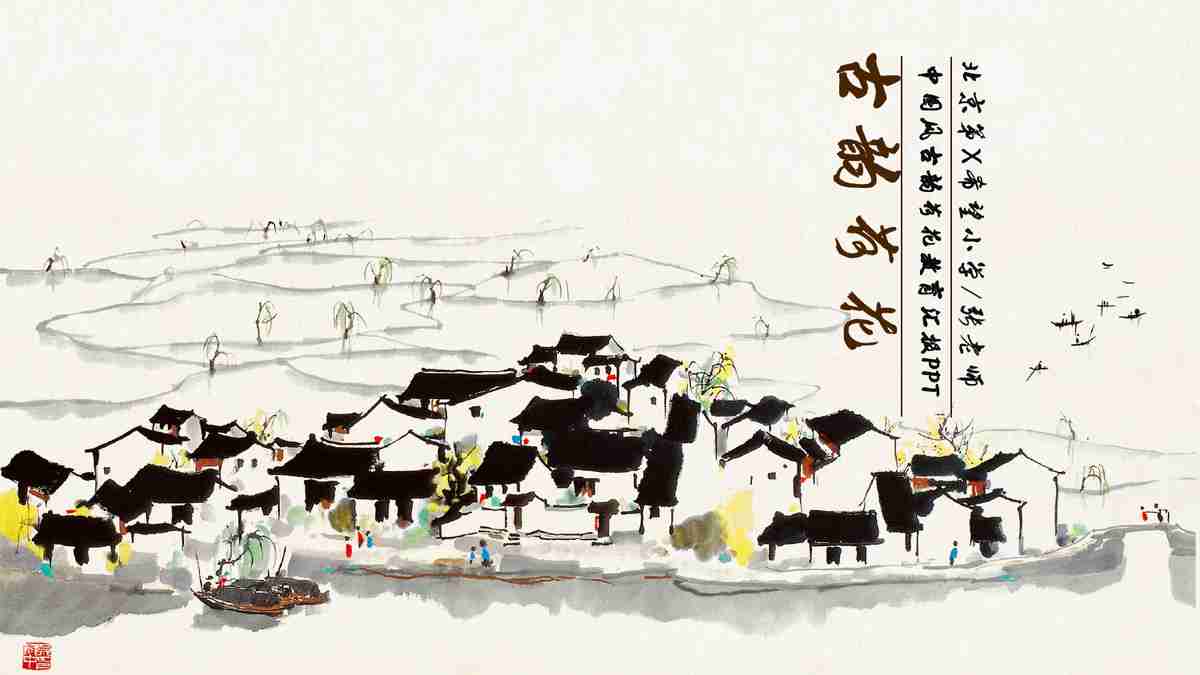 北京第X希望小学/张老师
中国风古韵荷花教育汇报PPT
古韵荷花